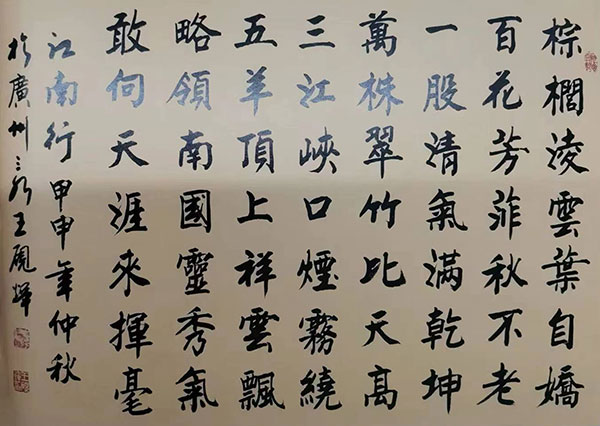 棕櫚淩雲葉自嬌
百花芳菲秋不老
一股清氣滿乾坤
萬株翠竹比天高
三江峽口煙霧繞
五羊頂上祥雲飄
略領南國靈秀氣
敢向天涯來揮毫
江南行 甲申年仲秋
於廣州 王